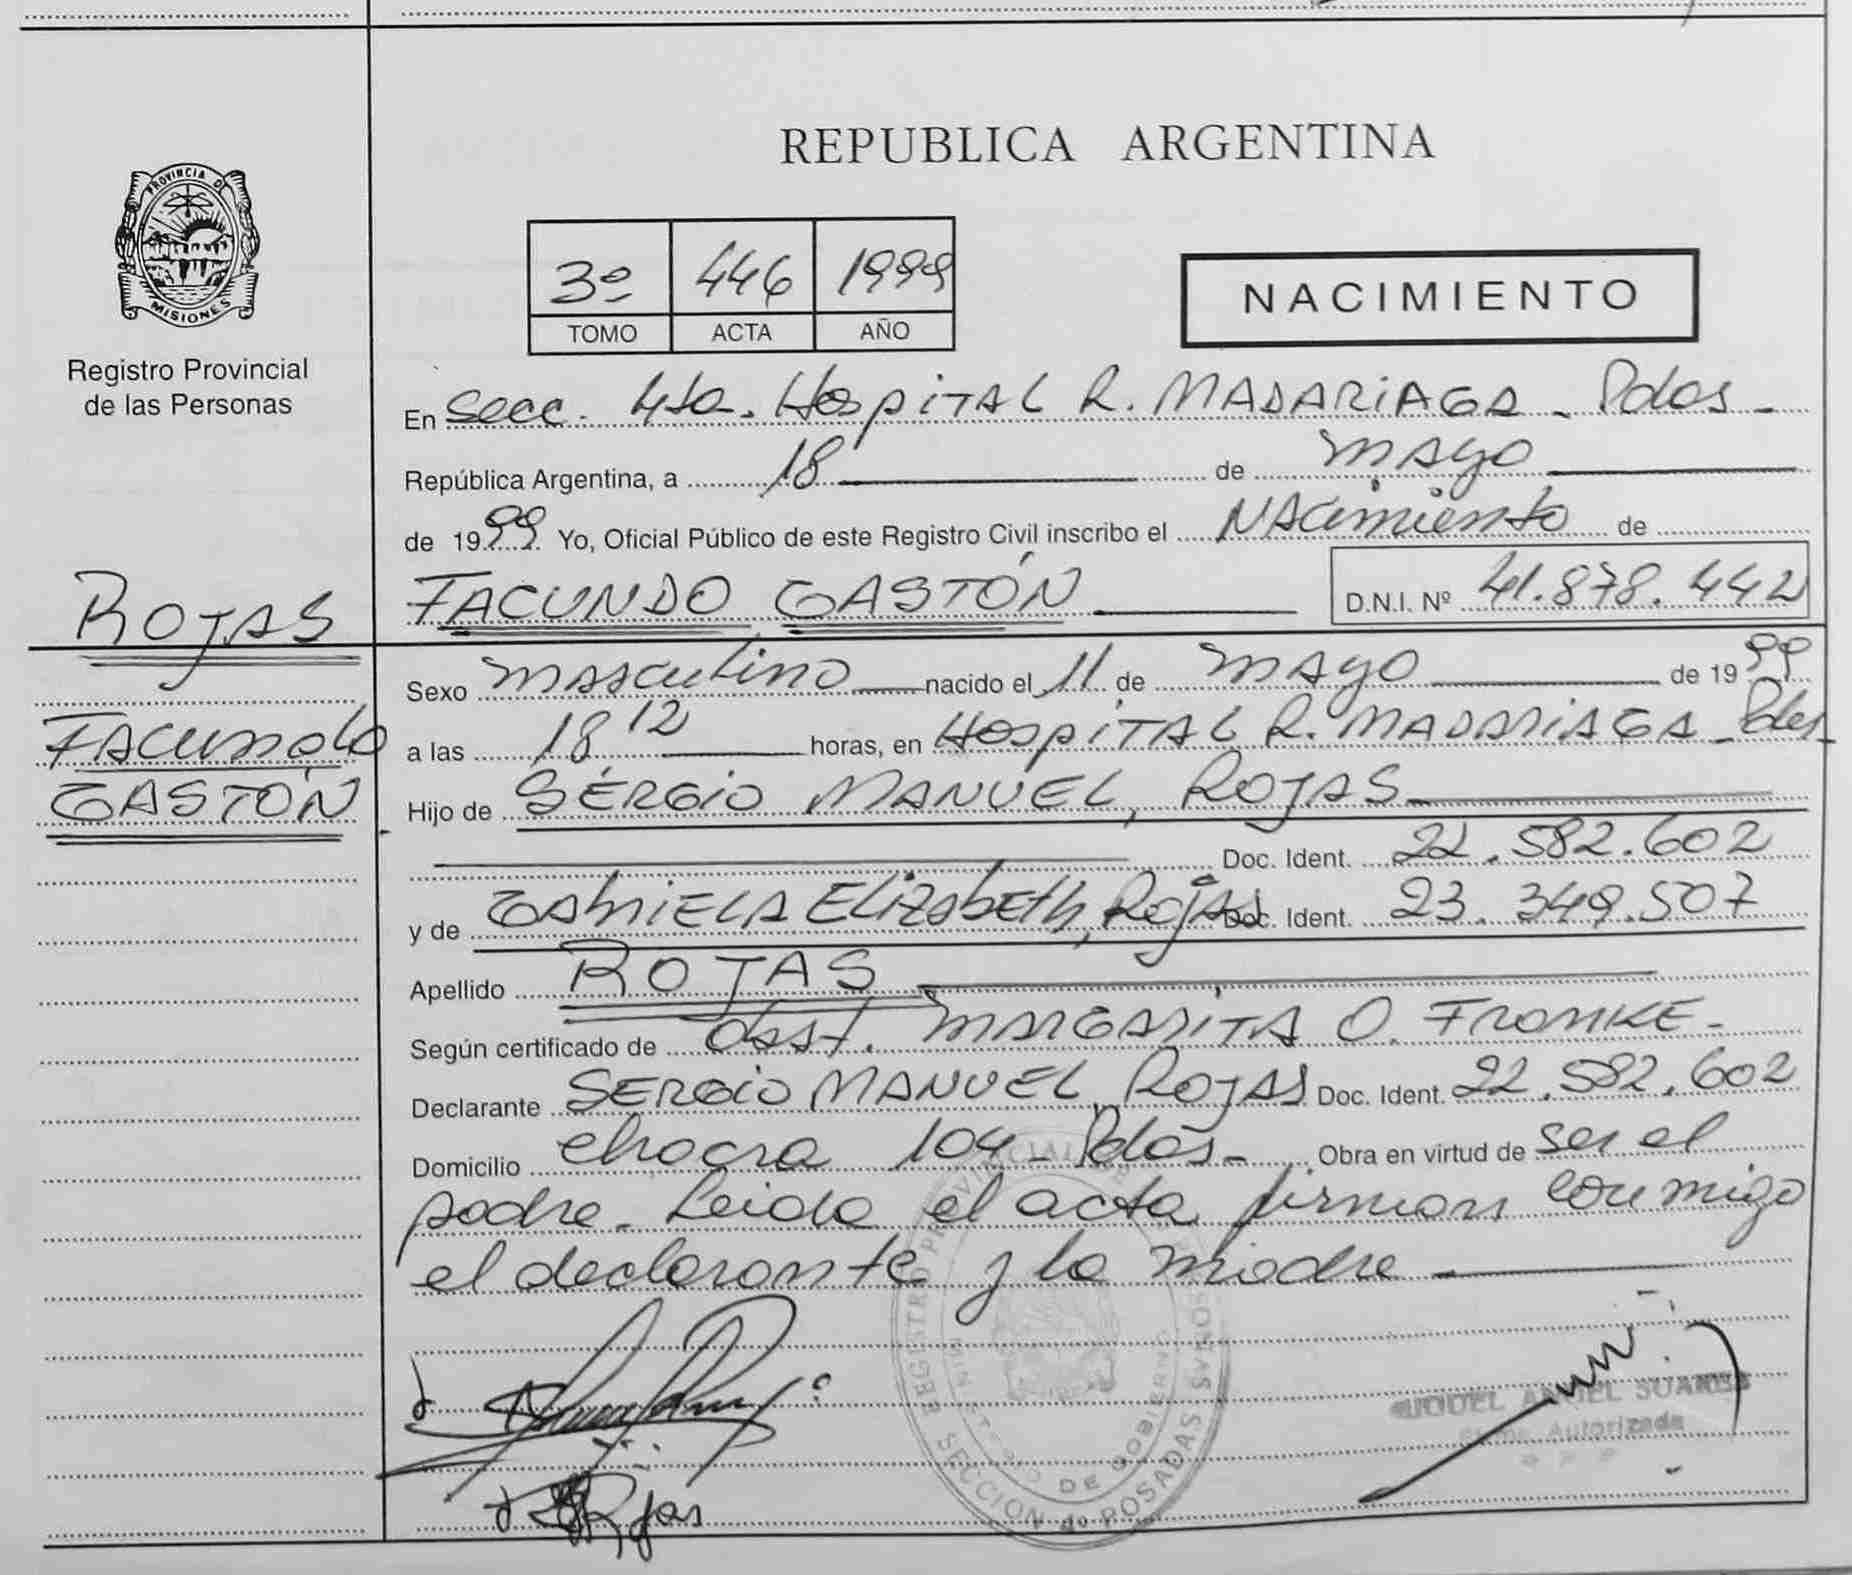 PROVINCIA DE
MISIONES
Registro Provincial
de las Personas
ROJAS
FACUNDO
GASTÓN
REPUBLICA ARGENTINA
3º 446 1999
TOMO ACTA AÑO
NACIMIENTO
En Secc. 4ta. Hospital R. MADARIAGA - Pdas -
República Argentina, a 18 de mayo
de 1999 Yo, Oficial Público de este Registro Civil inscribo el NAcimiento de
FACUNDO GASTÓN D.N.I. Nº 41.878.442
Sexo masculino nacido el 11 de mayo de 1999
a las 18,12 horas, en Hospital R. MADARIAGA - Pdas -
Hijo de SERGIO MANUEL, ROJAS
Doc. Ident. 22.582.602
y de GAbriELA ElizabETh, Rojas Doc. Ident. 23.349.507
Apellido ROJAS
Según certificado de Obst. MARGARITA O. FRONKE -
Declarante SERGIO MANUEL ROJAS Doc. Ident. 22.582.602
Domicilio chacra 104 - Pdas - Obra en virtud de ser el
padre - Leida el acta firman conmigo
el declarante y la madre
REGISTRO PROVINCIAL PERSONAS
MINISTERIO DE GOBIERNO
SECCION 4º POSADAS
Rojas
ANGEL SUAREZ
Firma Autorizada